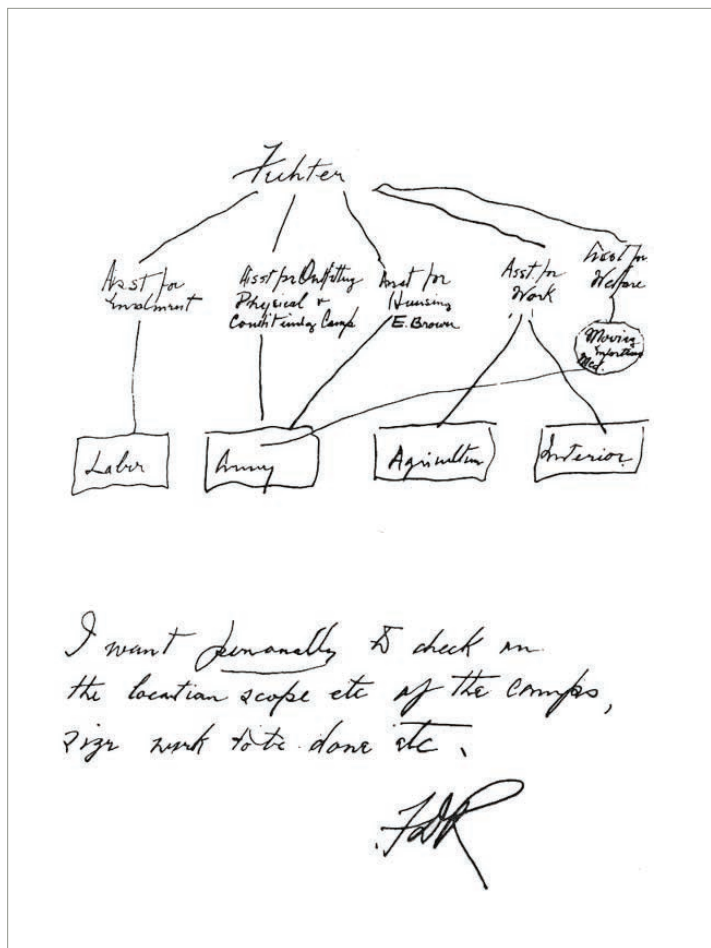 Fuhter
Asst for
Enrolment
Asst for Outfitting
Physical +
Conditioning Camp
Asst for
Housing
E. Brown
Asst for
Work
Asst for
Welfare
Moving
Med.
Labor
Army
Agriculture
Interior
I want personally to check on
the location scope etc of the camps,
size work to be done etc.
FDR